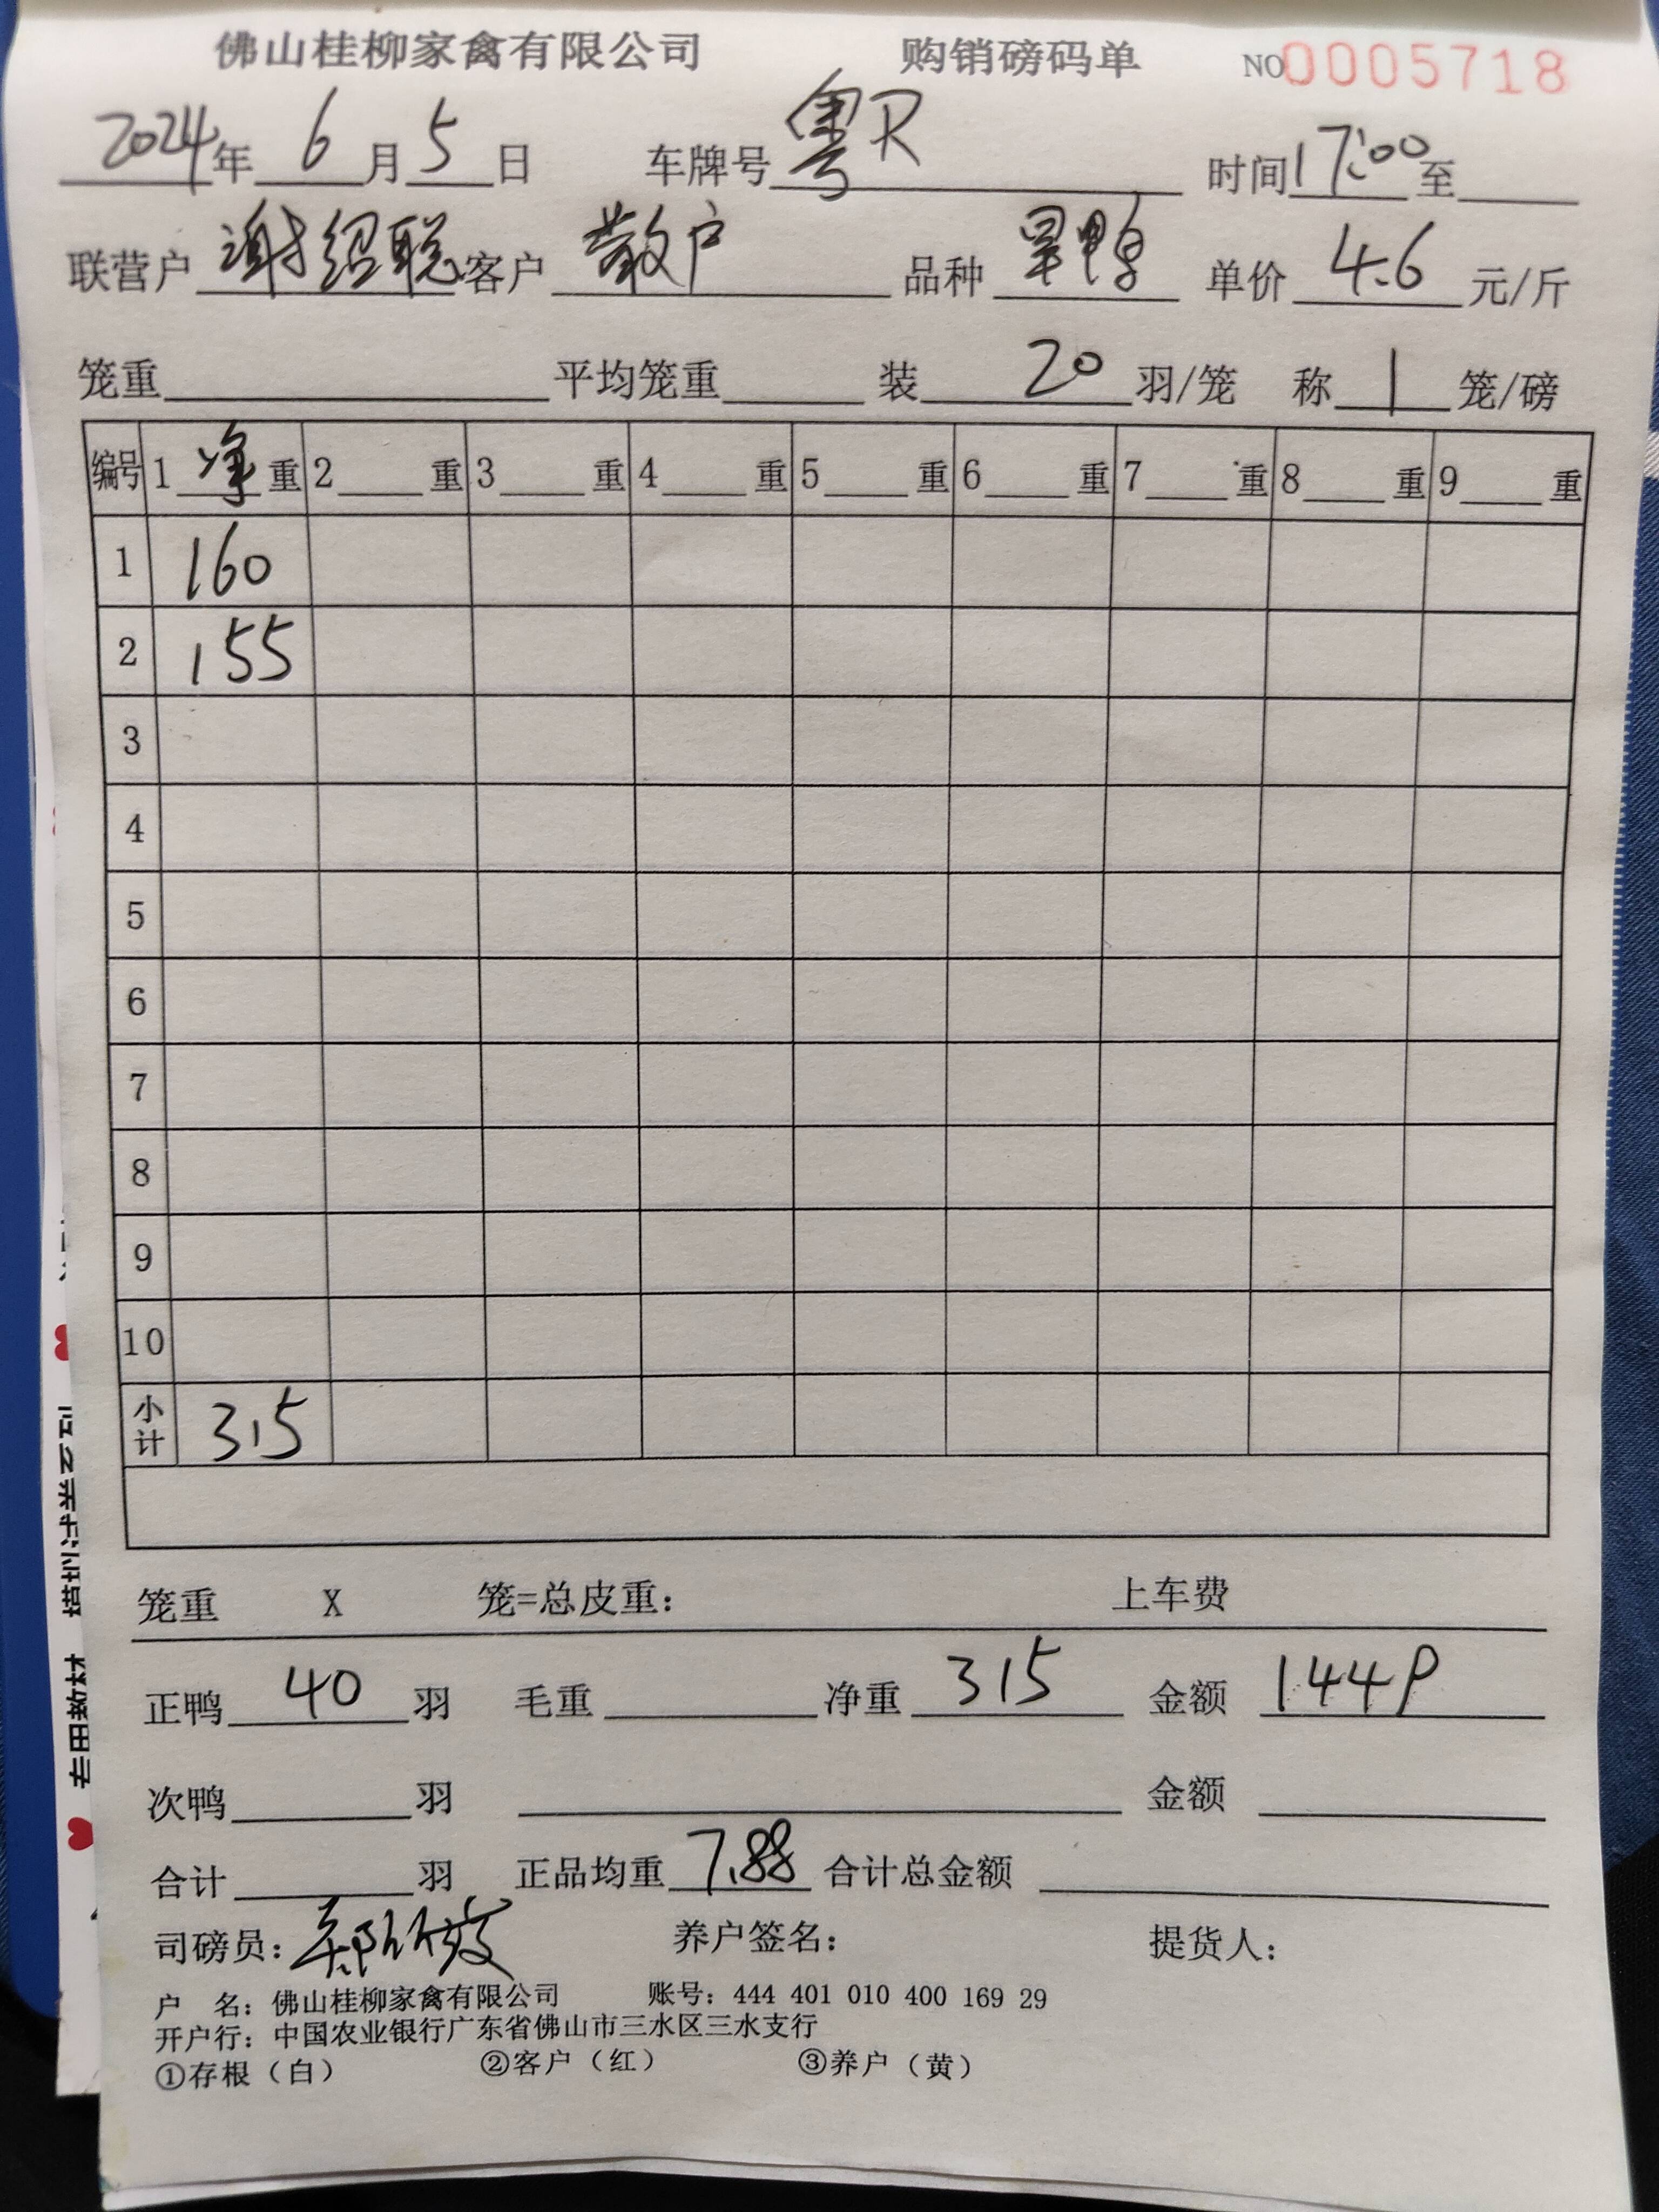 佛山桂柳家禽有限公司 购销磅码单 NO 0005718
2024年 6月5日 车牌号 粤R 时间17:00至
联营户 谢绍聪 客户 散户 品种 旱鸭 单价 4.6 元/斤
笼重 平均笼重 装 20 羽/笼 称 1 笼/磅
编号 1 净 重 2 重 3 重 4 重 5 重 6 重 7 重 8 重 9 重
1 160
2 155
3
4
5
6
7
8
9
10
小计 315
笼重 X 笼=总皮重： 上车费
正鸭 40 羽 毛重 净重 315 金额 1449
次鸭 羽 金额
合计 羽 正品均重 7.88 合计总金额
司磅员： 养户签名： 提货人：
户 名：佛山桂柳家禽有限公司 账号：444 401 010 400 169 29
开户行：中国农业银行广东省佛山市三水区三水支行
①存根（白） ②客户（红） ③养户（黄）